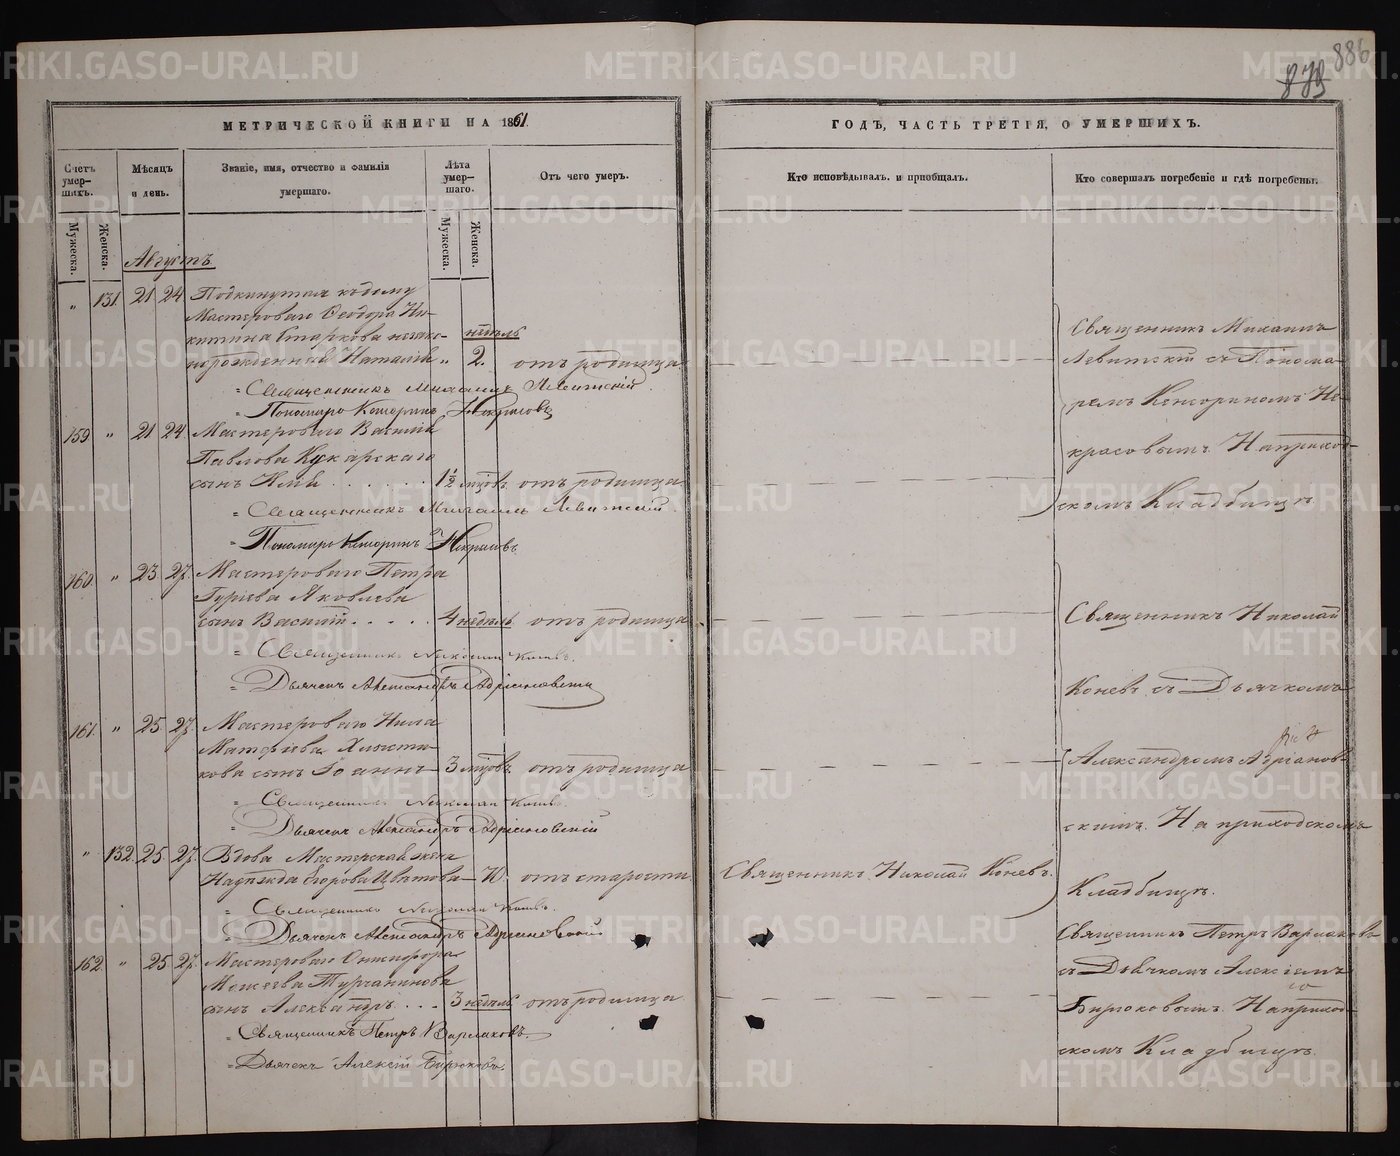 886
879
МЕТРИЧЕСКОЙ КНИГИ НА 1861
ГОДЪ, ЧАСТЬ ТРЕТІЯ, О УМЕРШИХЪ.
Счетъ умерших.
Мѣсяцъ и день.
Званіе, имя, отчество и фамилія умершаго.
Лѣта умершаго.
Отъ чего умеръ.
Кто исповѣдывалъ и пріобщалъ.
Кто совершалъ погребеніе и гдѣ погребены.
Мужеска.
Женска.
Мужеска.
Женска.
Августъ
" 131. 21 24 Подкинутая къ дому
Мастероваго Ѳеодора Ни-
китина Старкова незакон-
норожденная Наталія " недѣль 2. отъ родимца
Священникъ Михаилъ Левитскій
Пономарь Кенсоринъ Некрасовъ
Священникъ Михаилъ
Левитскій съ Понома-
ремъ Кенсориномъ Не-
красовымъ На приход-
скомъ Кладбищѣ
159 " 21 24 Мастероваго Василія
Павлова Кукарскаго
сынъ Илія 1 1/2 мцовъ. отъ родимца
Священникъ Михаилъ Левитскій
Пономарь Кенсоринъ Некрасовъ.
160. " 23. 27. Мастероваго Петра
Гуріева Яковлева
сынъ Василій 4 недѣль отъ родимца
Священникъ Николай Коневъ.
Дьячекъ Александръ Адріановскій
Священникъ Николай
Коневъ съ Дьячкомъ
Александромъ Адріанов-
скимъ. На приходскомъ
Кладбищѣ.
161. " 25 27. Мастероваго Нила
Матѳіева
кова сынъ Іоаннъ 3 мцовъ. отъ родимца
Священникъ Николай Коневъ.
Дьячекъ Александръ Адріановскій
" 132. 25. 27. Вдова Мастерская жена
Надежда Егорова 70. отъ старости. Священникъ Николай Коневъ.
Священникъ Николай Коневъ.
Дьячекъ Александръ Адріановскій
162. " 25 27. Мастероваго
Моисеева Турчанинова
сынъ Александръ 3 недѣль отъ родимца
Священникъ Петръ Варлаковъ.
Дьячекъ Алексій Бирюковъ.
Священникъ Петръ Варлаковъ
съ Дьячкомъ Алексіемъ
Бирюковымъ. На приход-
скомъ Кладбищѣ.
METRIKI.GASO-URAL.RU